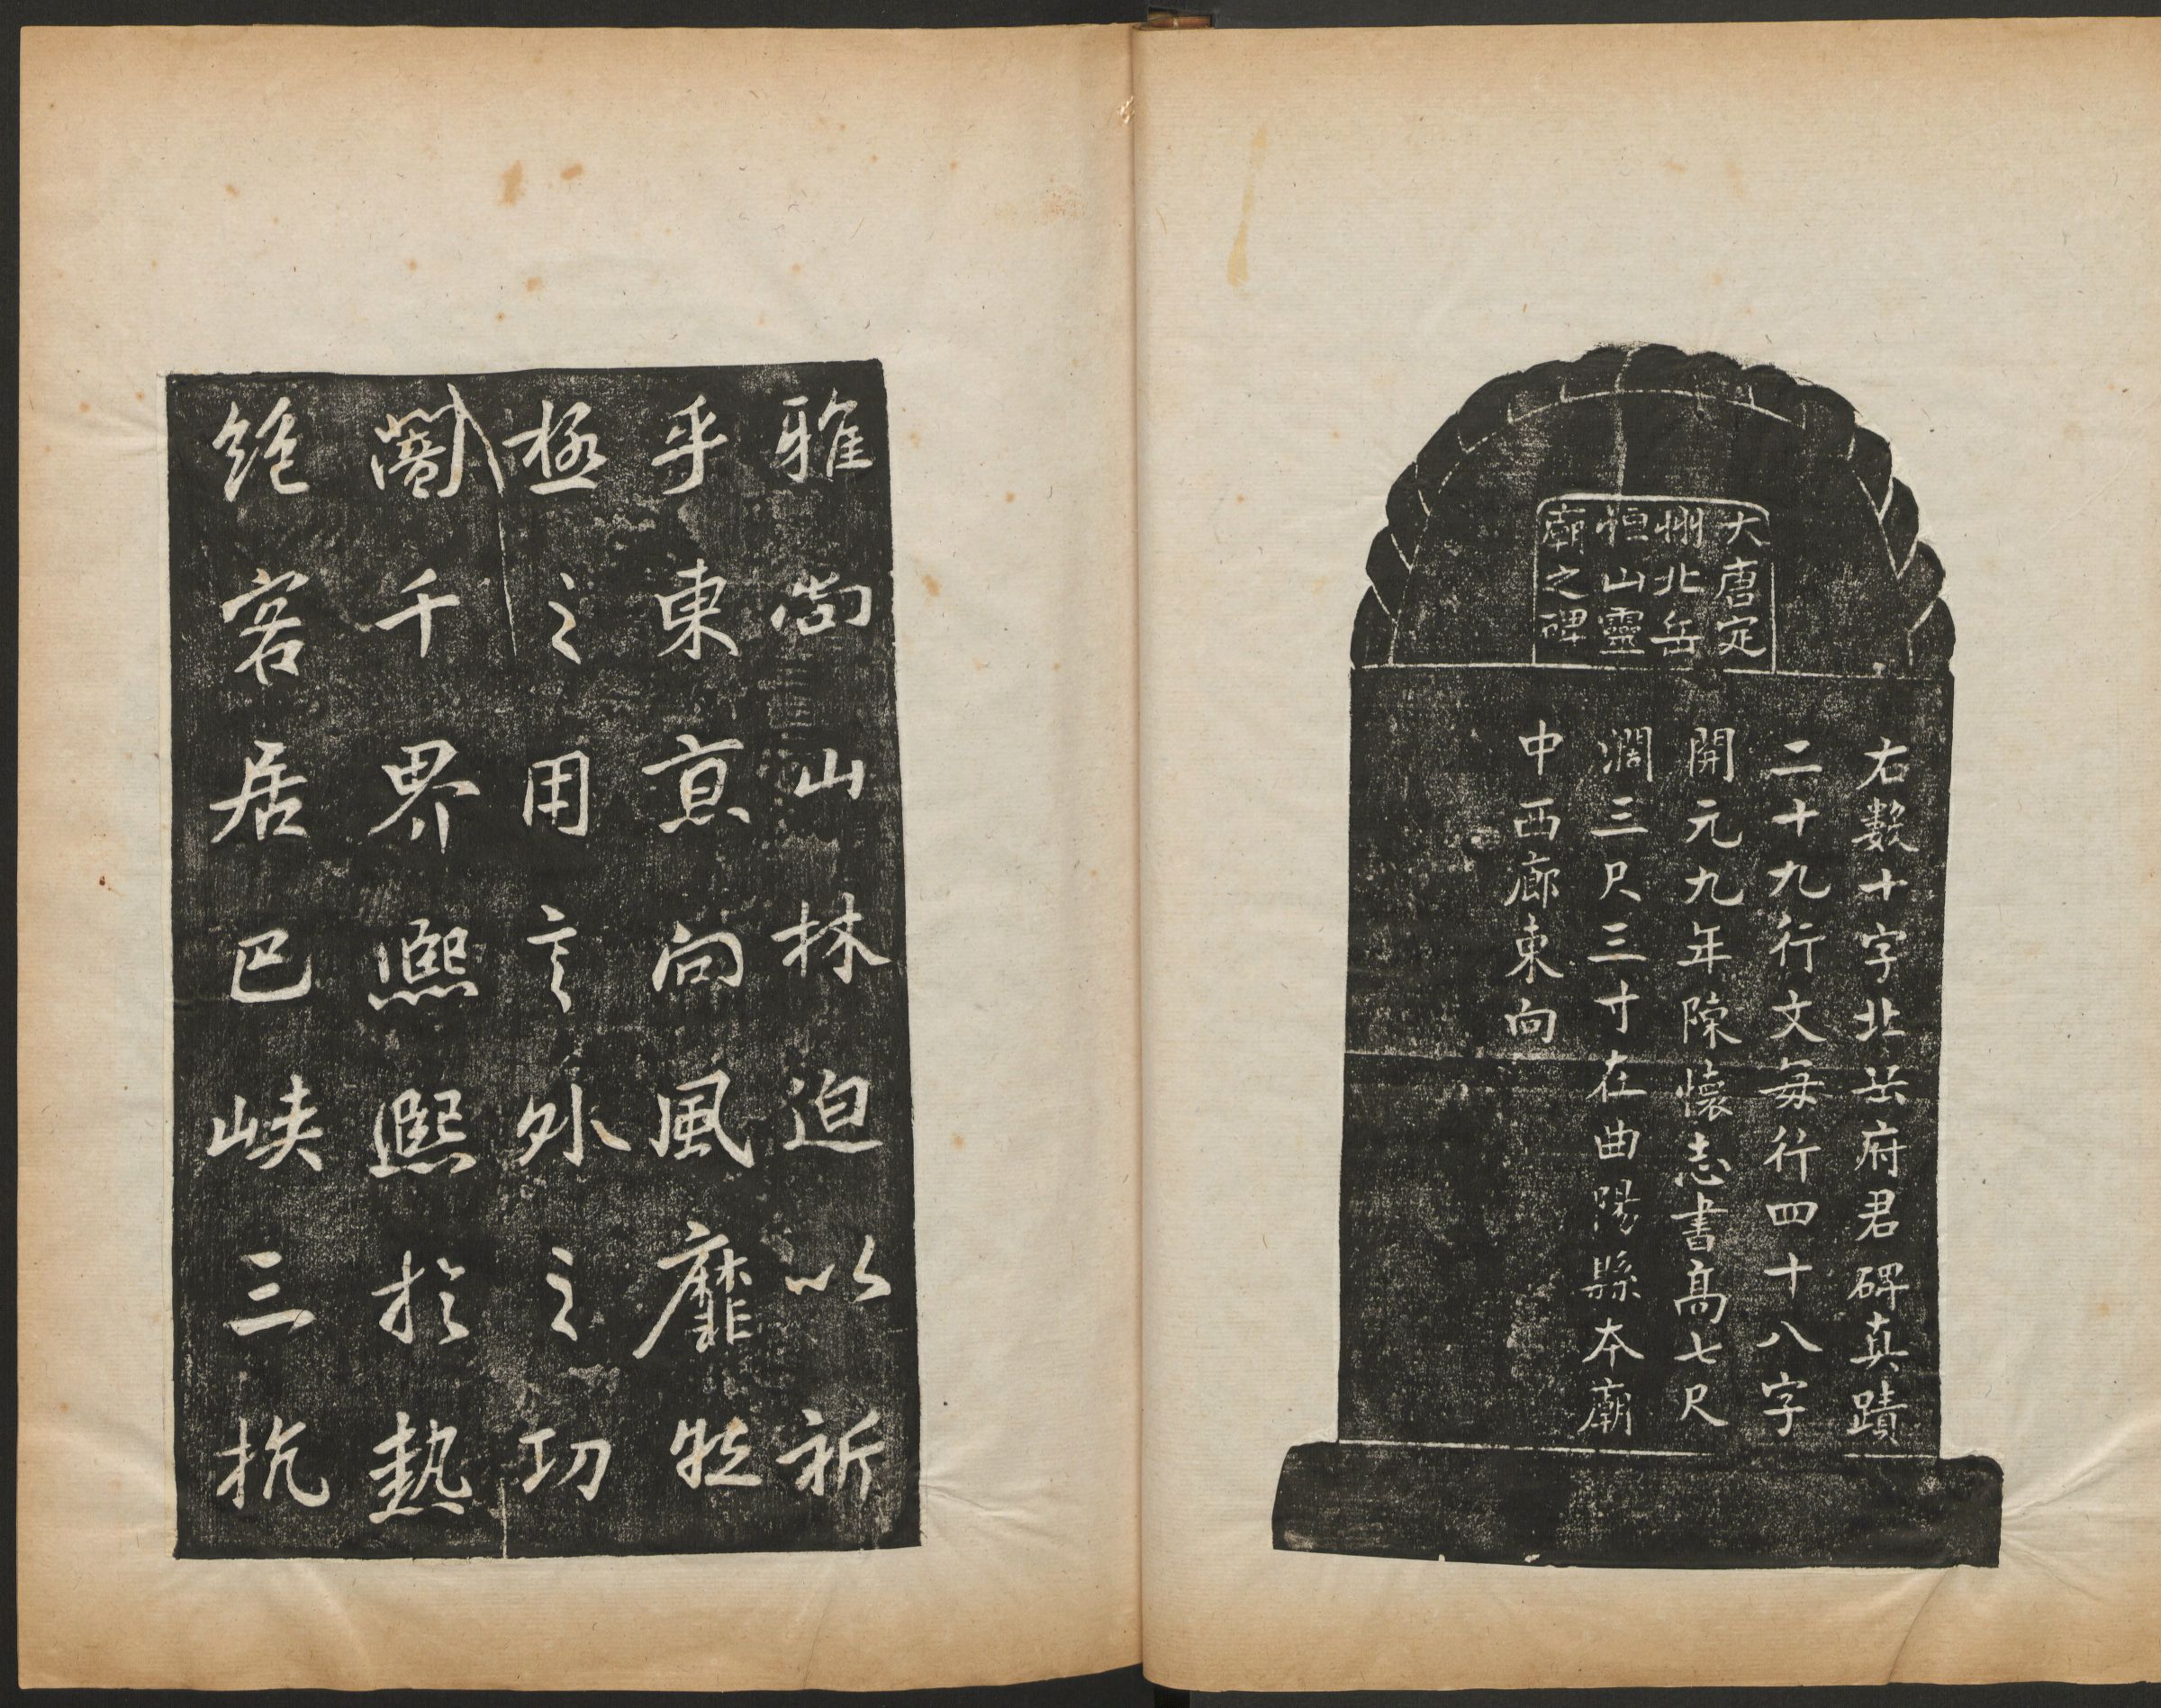 大唐定
州北岳
恒山靈
廟之碑
右數十字北岳府君碑真蹟
二十九行文每行四十八字
開元九年陳懷志書高七尺
濶三尺三寸在曲陽縣本廟
中西廊東向
雅尚山林迫以祈
乎東亰向風靡牧
極之用言外之功
千界熙熙於熱
絶客居巴峽三抗